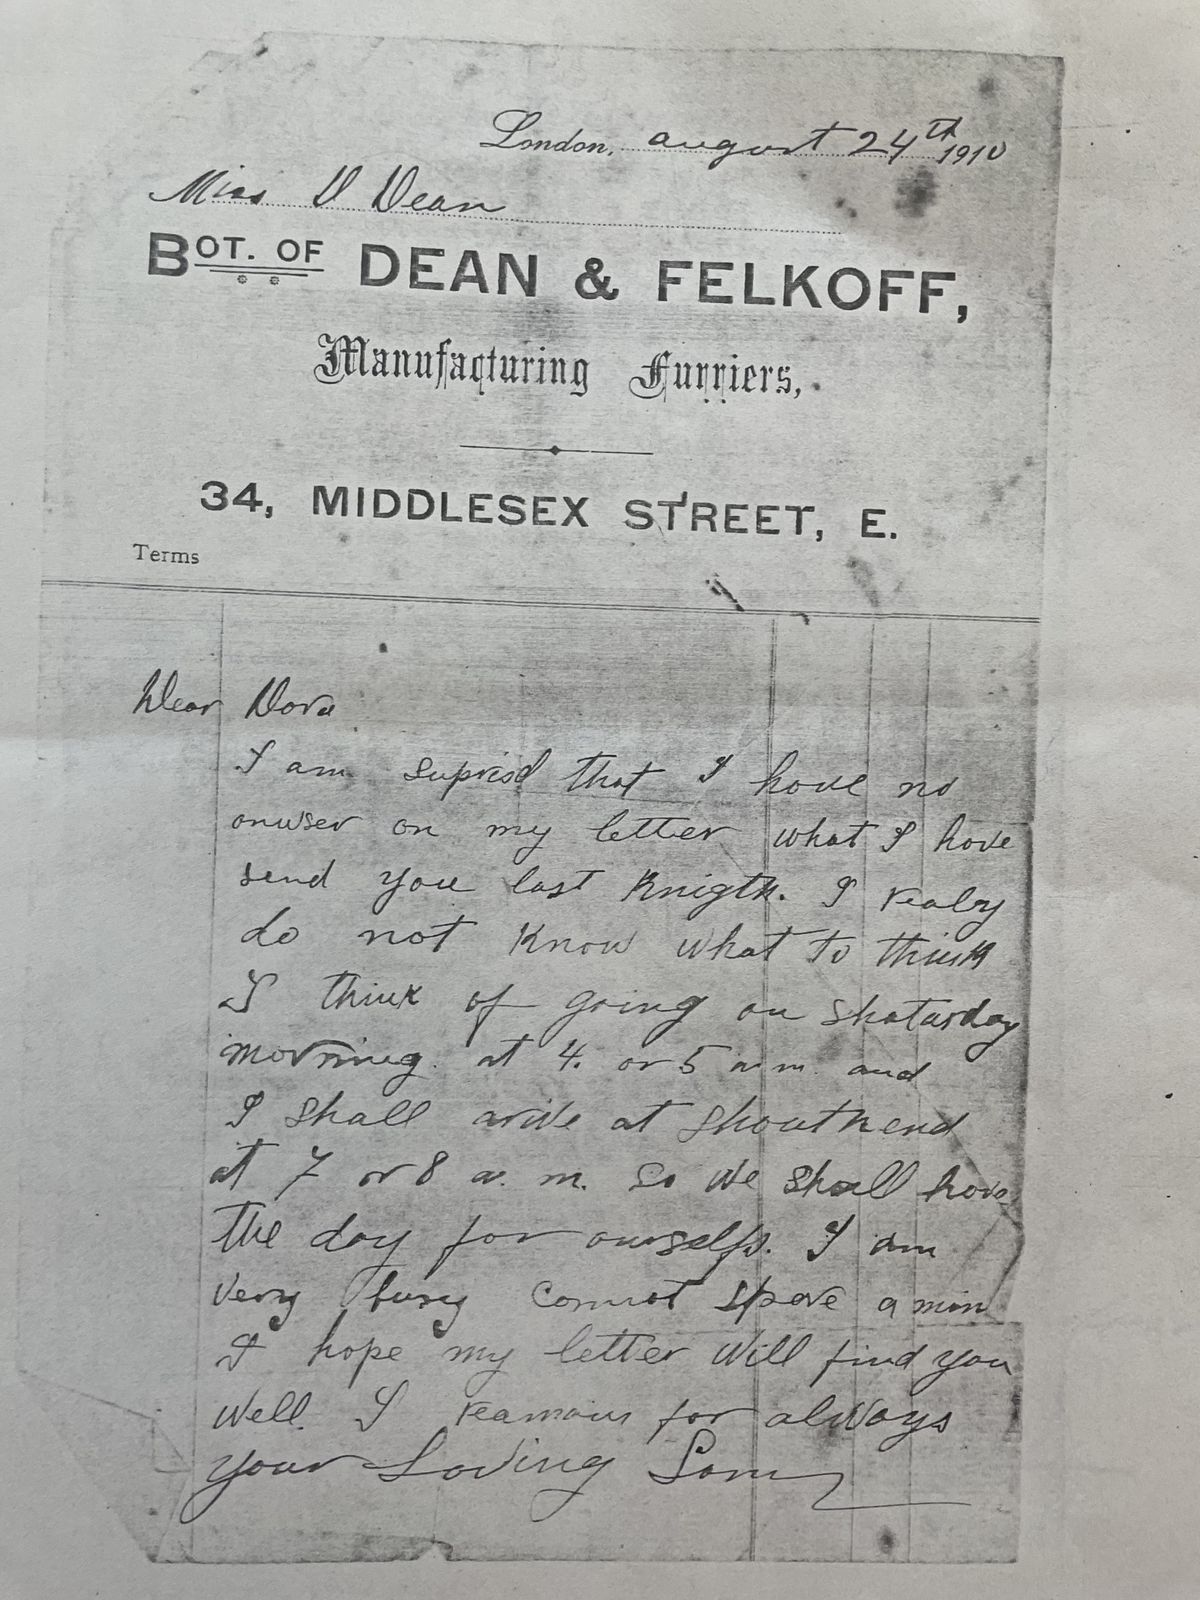 London, august 24th 1910
Miss D Dean
BOT. OF DEAN & FELKOFF,
Manufacturing Furriers,
34, MIDDLESEX STREET, E.
Terms
Dear Dora
I am suprisd that I have no
anwser on my letter what I have
send you last Knigth. I realy
do not know what to think
I think of going on Shaturday
morning. at 4. or 5 a.m. and
I shall arive at Shouthend
at 7 or 8 a. m. so we shall have
the day for ourselfs. I am
very busy cannot spare a min
I hope my letter will find you
well. I reamain for always
your Loving